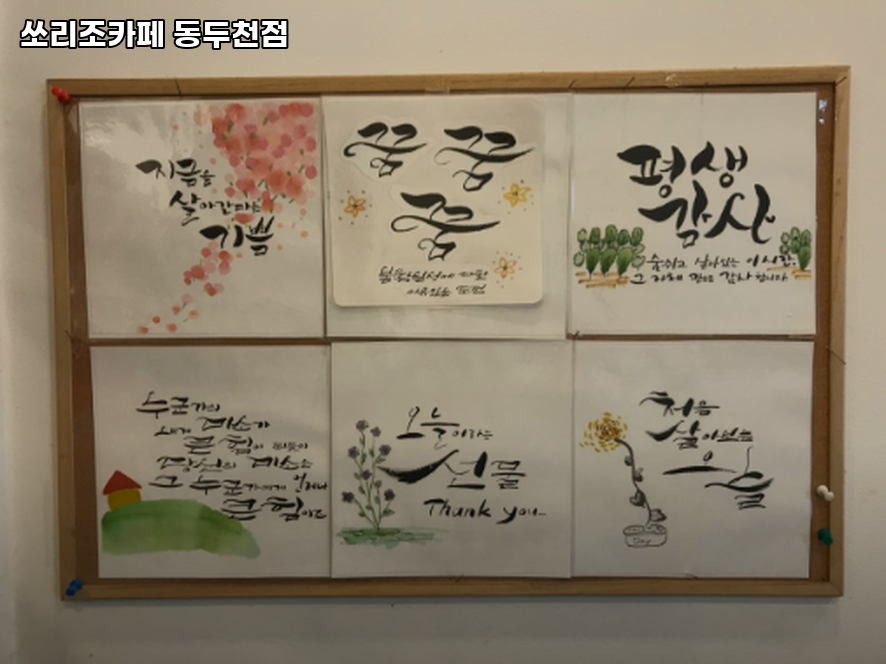 쏘리조카페 동두천점
지금을
살아간다는
기쁨
꿈 꿈
꿈
평생
감사
숨쉬고 살아있는 이 시간,
그 자체 만으로 감사합니다
누군가의
미소가
큰 힘이 되듯이
당신의 미소는
그 누군가에게 얼마나
큰 힘이
오늘이라는
선물
Thank you
처음
살아보는
오늘
Day